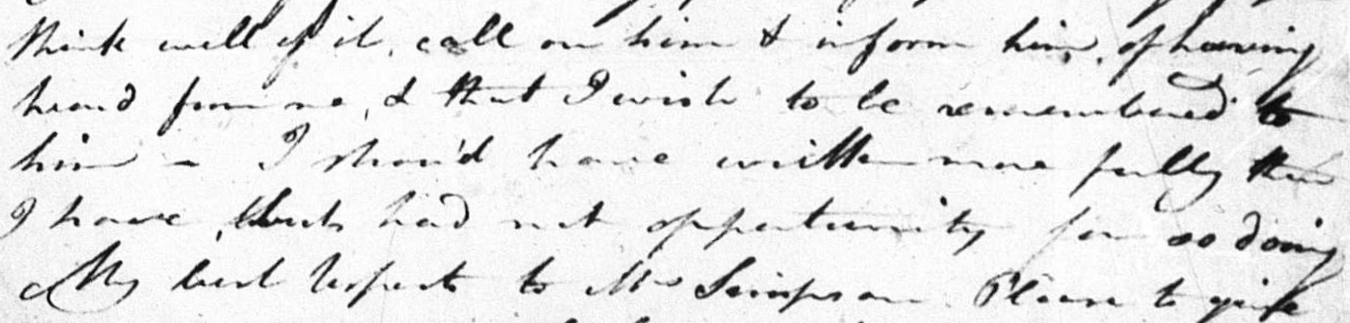 think well of it, call on him & inform him, of having
heard from me, & that I wish to be remembered to
him – I shou'd have written more fully than
I have, but had not opportunity for so doing
My best respects to Mr Simpson. Please to give